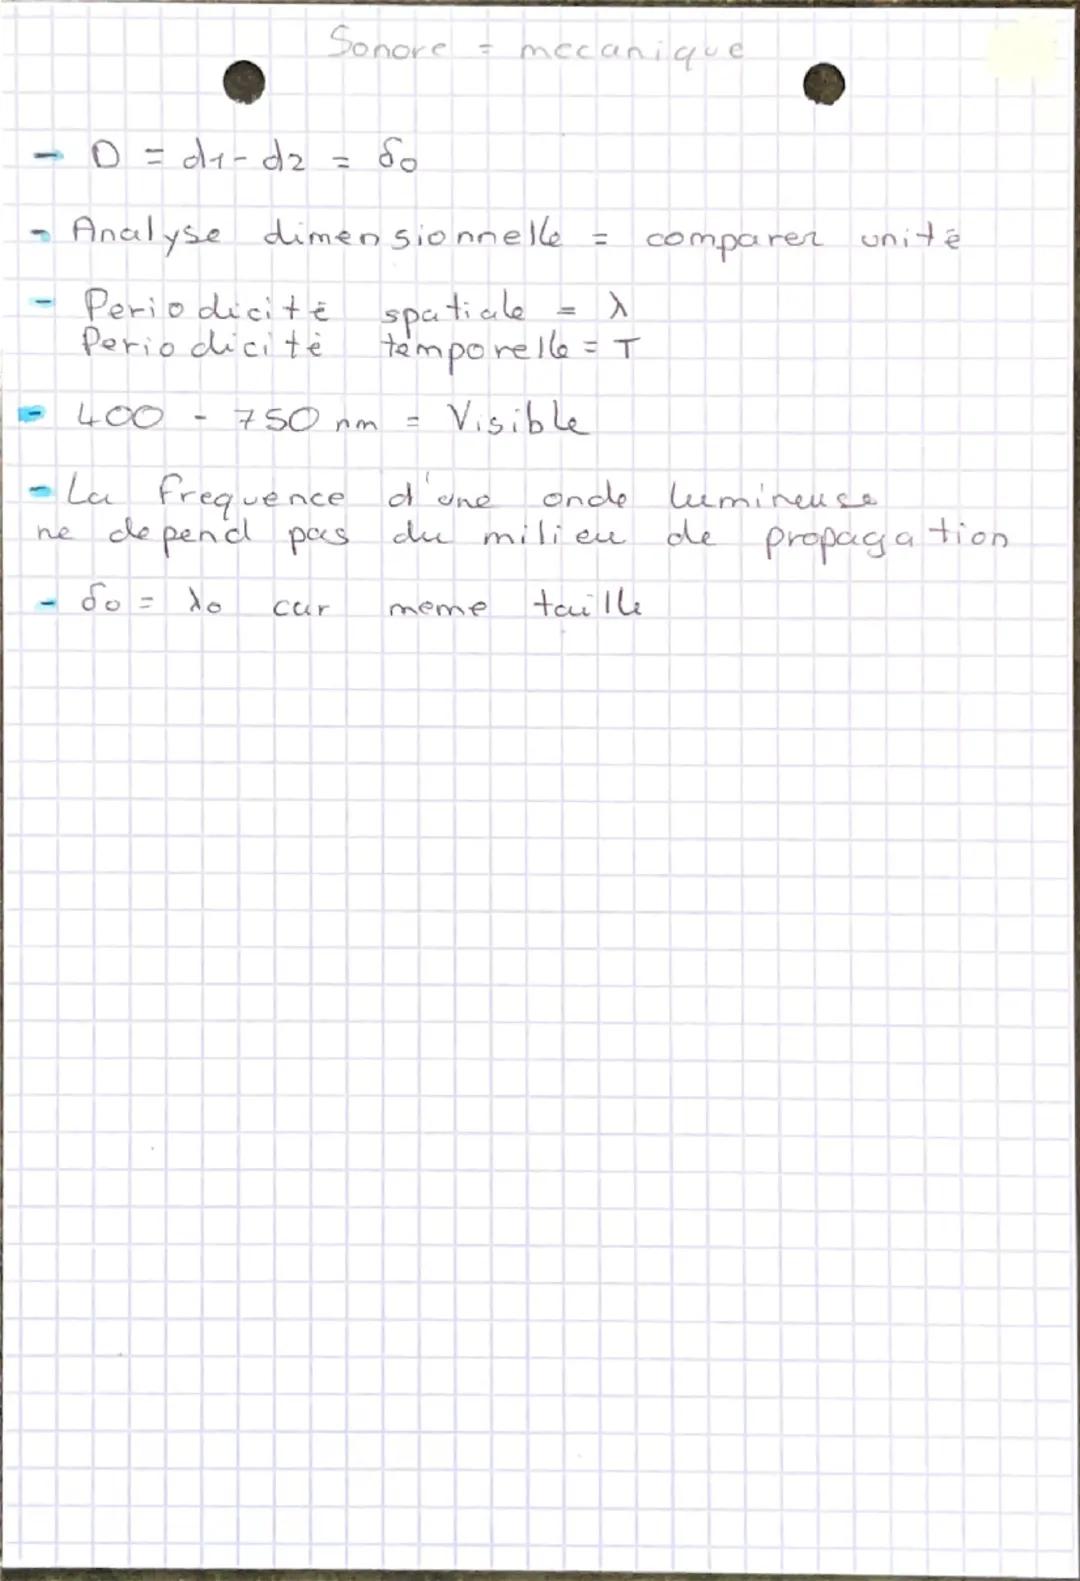 Sonore = mecanique
- D = d1 - d2 = δ0
- Analyse dimensionnelle = comparer unité
- Periodicité spatiale = λ
Periodicité temporelle = T
- 400 - 750 nm = Visible
- La frequence d'une onde lumineuse
ne depend pas du milieu de propagation
- δ0 = λ0 car meme taille